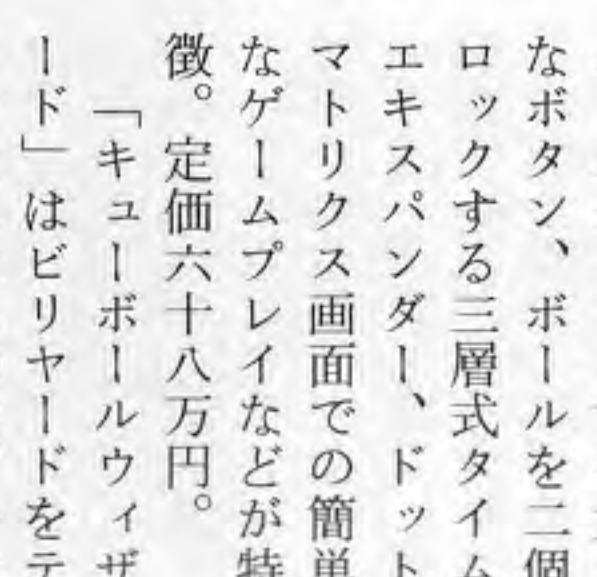 なボタン、ボールを二個
ロックする三層式タイム
エキスパンダー、ドット
マトリクス画面での簡単
なゲームプレイなどが特
徴。定価六十八万円。
「キューボールウィザ
ード」はビリヤードをテ